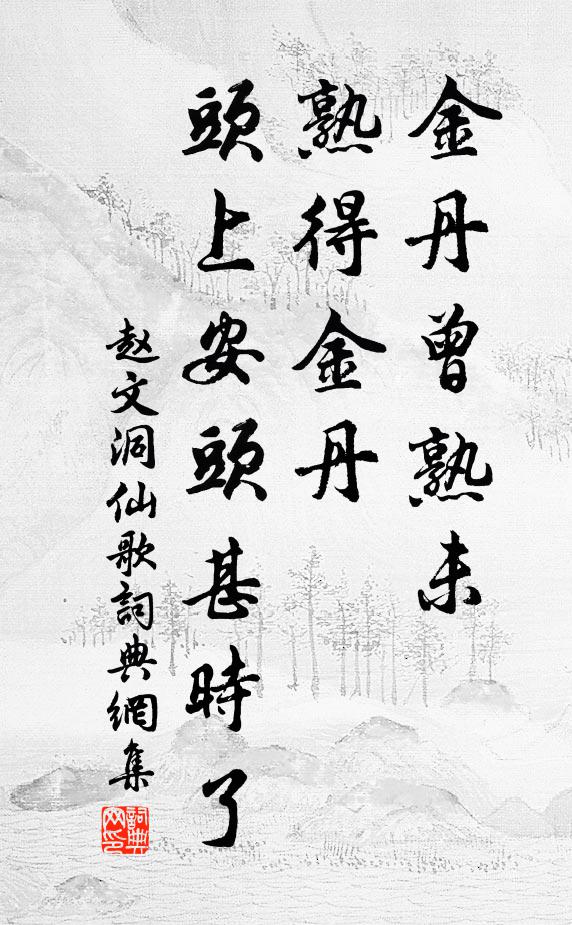 金丹曾熟未
熟得金丹
頭上安頭甚時了
赵文洞仙歌詞典網集
詞典
网印